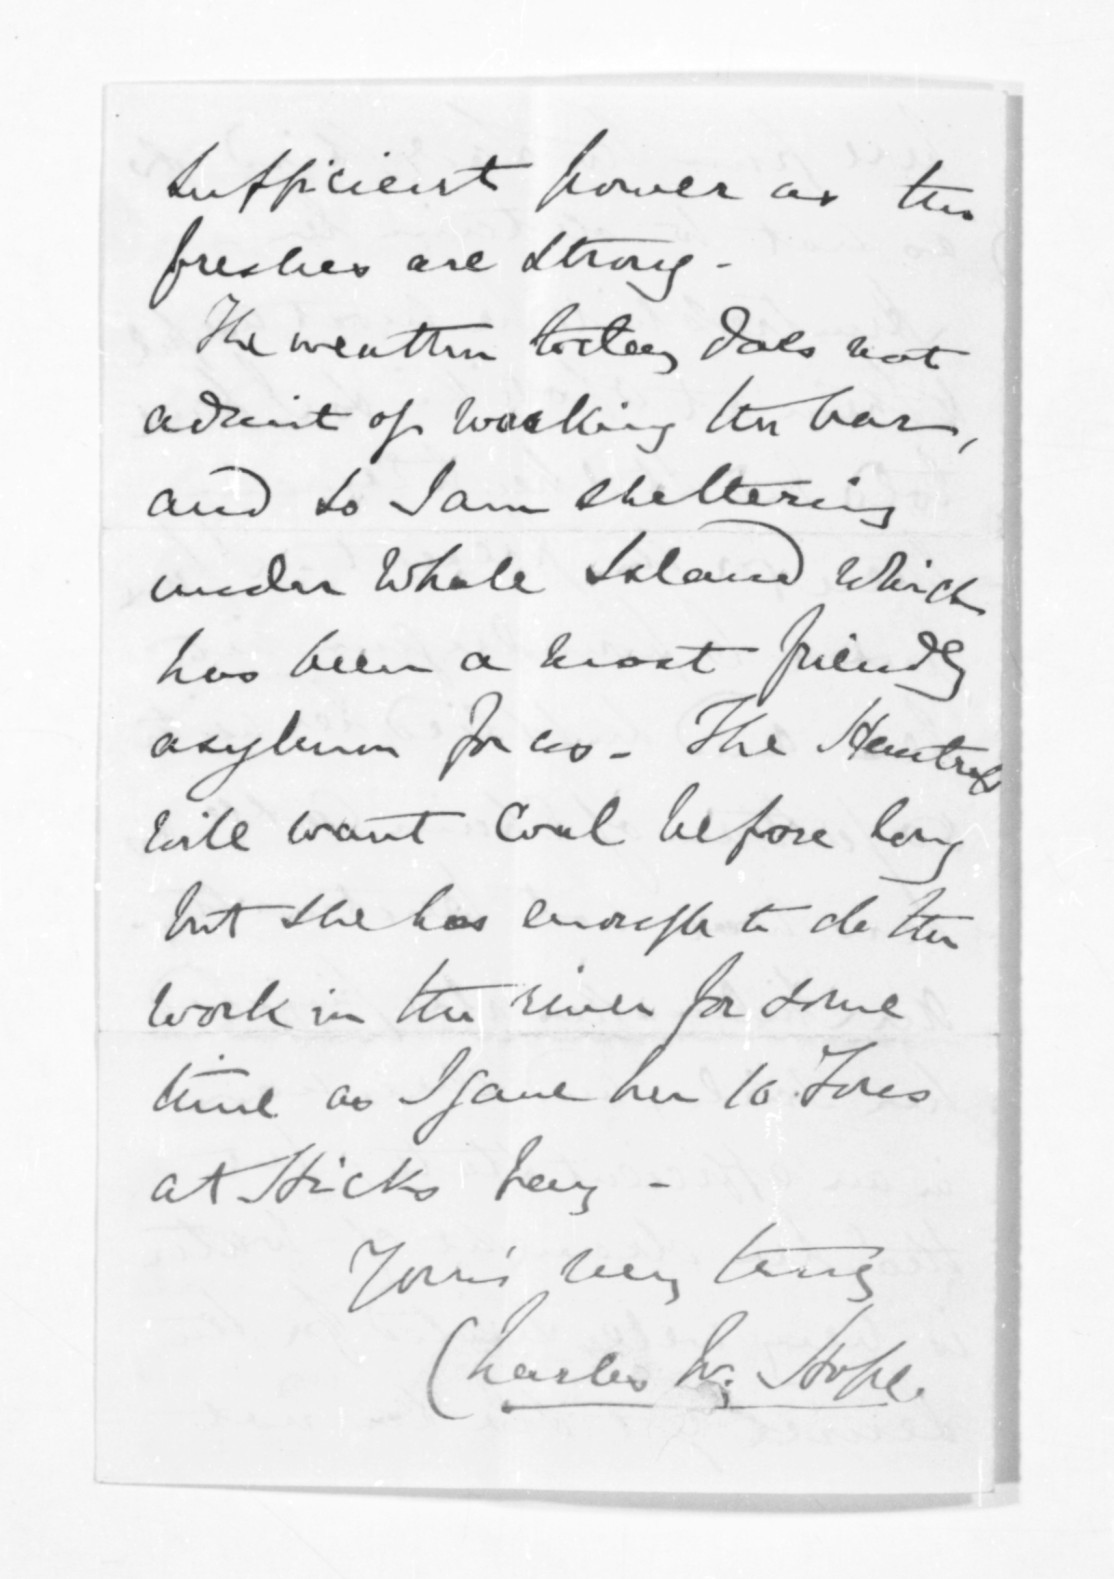 sufficient power as the
freshes are strong -
The weather today does not
admit of working the bar,
and so I am sheltering
under Whale Island which
has been a most friendly
asylum for us - The Huntress
will want coal before long
but she has enough to do the
work in the river for some
time as I gave her 10 Tons
at Hicks bay -
Yours very truly
Charles W. Hope.